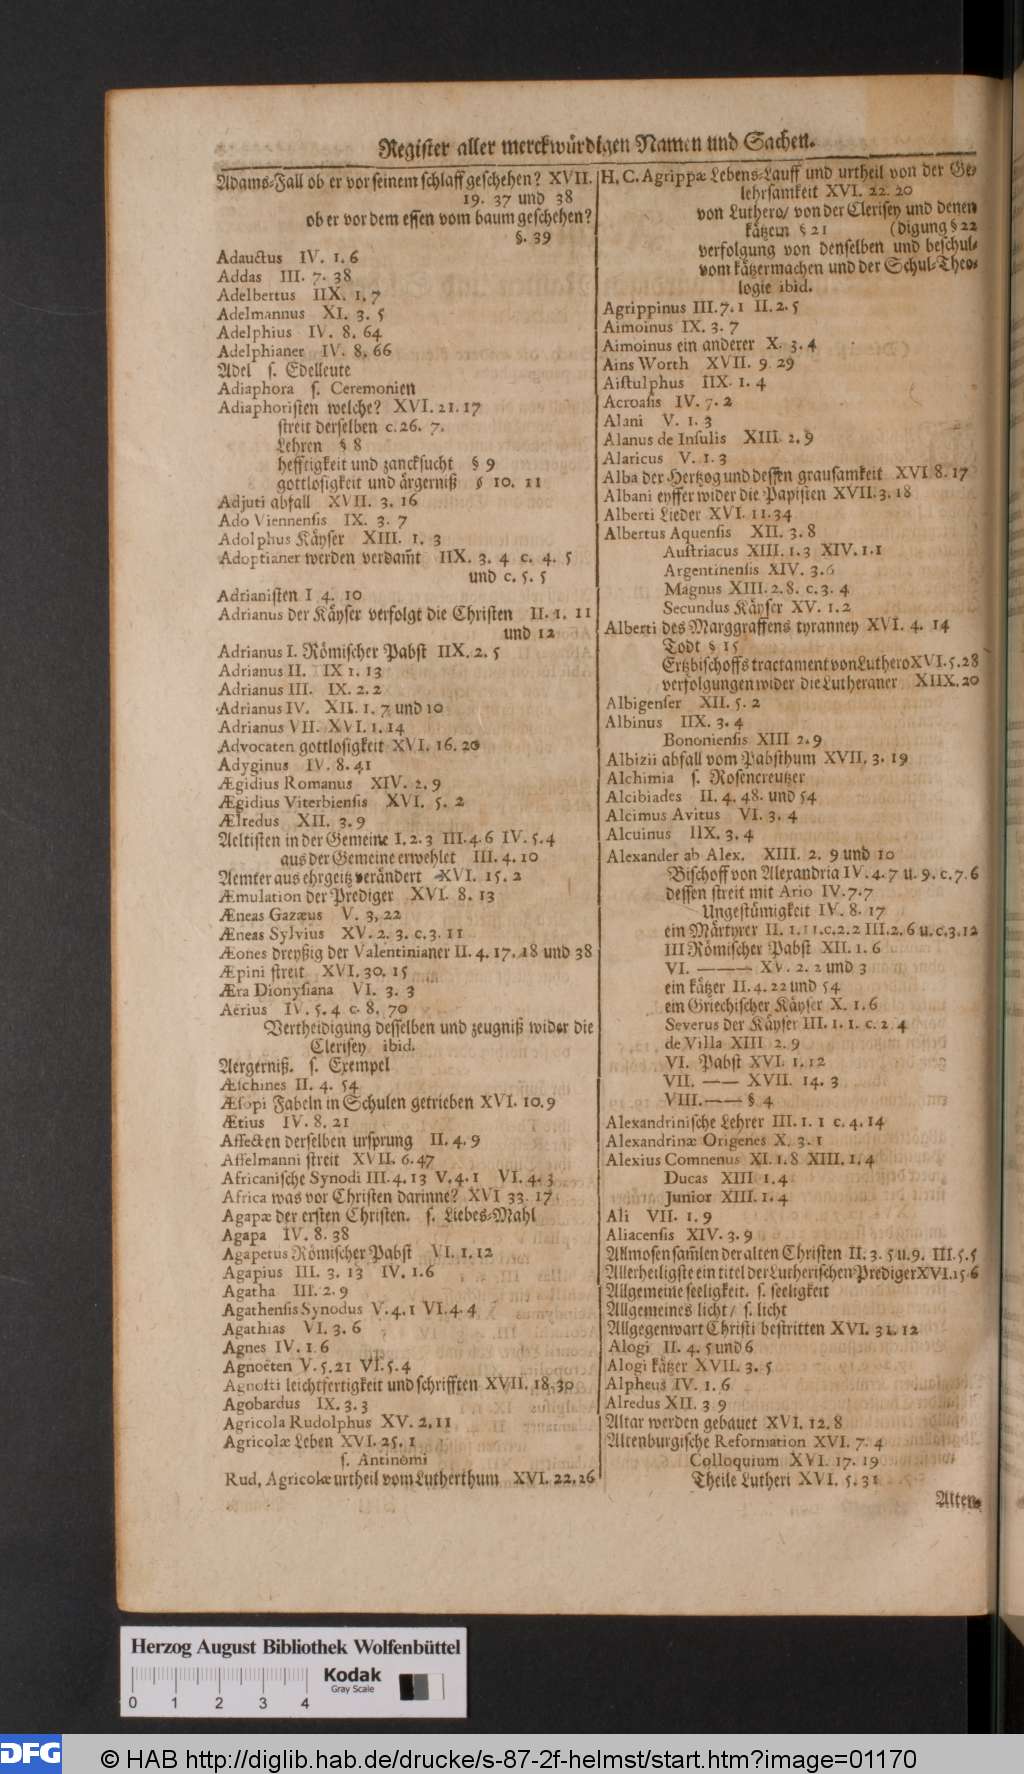 Register aller merckwürdigen Namen und Sachen.
Adams-Fall ob er vor seinem schlaff geschehen? XVII.
19. 37 und 38
ob er vor dem essen vom baum geschehen?
§. 39
Adauctus IV. 1. 6
Addas III. 7. 38
Adelbertus IIX. 1. 7
Adelmannus XI. 3. 5
Adelphius IV. 8. 64
Adelphianer IV. 8. 66
Adel s. Edelleute
Adiaphora s. Ceremonien
Adiaphoristen welche? XVI. 21. 17
streit derselben c. 26. 7.
Lehren § 8
hefftigkeit und zancksucht § 9
gottlosigkeit und ärgerniß § 10. 11
Adjuti abfall XVII. 3. 16
Ado Viennensis IX. 3. 7
Adolphus Käyser XIII. 1. 3
Adoptianer werden verdam̃t IIX. 3. 4 c. 4. 5
und c. 5. 5
Adrianisten I 4. 10
Adrianus der Käyser verfolgt die Christen II. 1. 11
und 12
Adrianus I. Römischer Pabst IIX. 2. 5
Adrianus II. IX 1. 13
Adrianus III. IX. 2. 2
Adrianus IV. XII. 1. 7 und 10
Adrianus VII. XVI. 1. 14
Advocaten gottlosigkeit XVI. 16. 20
Adyginus IV. 8. 41
Ægidius Romanus XIV. 2. 9
Ægidius Viterbiensis XVI. 5. 2
Ælredus XII. 3. 9
Aeltisten in der Gemeine I. 2. 3 III. 4. 6 IV. 5. 4
aus der Gemeine erwehlet III. 4. 10
Aemter aus ehrgeitz verändert XVI. 15. 2
Æmulation der Prediger XVI. 8. 13
Æneas Gazæus V. 3, 22
Æneas Sylvius XV. 2. 3. c. 3. 11
Æones dreyßig der Valentinianer II. 4. 17. 18 und 38
Æpini streit XVI. 30. 15
Æra Dionysiana VI. 3. 3
Aërius IV. 5. 4 c. 8. 70
Vertheidigung desselben und zeugniß wider die
Clerisey ibid.
Aergerniß. s. Exempel
Æschines II. 4. 54
Æsopi Fabeln in Schulen getrieben XVI. 10. 9
Ætius IV. 8. 21
Affecten derselben ursprung II. 4. 9
Affelmanni streit XVII. 6. 47
Africanische Synodi III. 4. 13 V. 4. 1 VI. 4. 3
Africa was vor Christen darinne? XVI 33. 17
Agapæ der ersten Christen. s. Liebes-Mahl
Agapa IV. 8. 38
Agapetus Römischer Pabst VI. 1. 12
Agapius III. 3. 13 IV. 1. 6
Agatha III. 2. 9
Agathensis Synodus V. 4. 1 VI. 4. 4
Agathias VI. 3. 6
Agnes IV. 1. 6
Agnoëten V. 5. 21 VI. 5. 4
Agnosti leichtfertigkeit und schrifften XVII. 18. 30
Agobardus IX. 3. 3
Agricola Rudolphus XV. 2. 11
Agricolæ Leben XVI. 25. 1
s. Antinomi
Rud. Agricolæ urtheil vom Lutherthum XVI. 22. 26
H. C. Agrippæ Lebens-Lauff und urtheil von der Ge-
lehrsamkeit XVI. 22. 20
von Luthero/ von der Clerisey und denen
kätzern § 21 (digung § 22
verfolgung von denselben und beschul-
vom kätzermachen und der Schul-Theo-
logie ibid.
Agrippinus III. 7. 1 II. 2. 5
Aimoinus IX. 3. 7
Aimoinus ein anderer X. 3. 4
Ains Worth XVII. 9 29
Aistulphus IIX. 1. 4
Acroasis IV. 7. 2
Alani V. 1. 3
Alanus de Insulis XIII. 2. 9
Alaricus V. 1. 3
Alba der Hertzog und dessen grausamkeit XVI 8. 17
Albani eyffer wider die Papisten XVII. 3. 18
Alberti Lieder XVI. 11. 34
Albertus Aquensis XII. 3. 8
Austriacus XIII. 1. 3 XIV. 1. 1
Argentinensis XIV. 3. 6
Magnus XIII. 2. 8. c. 3. 4
Secundus Käyser XV. 1. 2
Alberti des Marggraffens tyranney XVI. 4. 14
Todt § 15
Ertzbischoffs tractament von Luthero XVI. 5. 28
verfolgungen wider die Lutheraner XIIX. 20
Albigenser XII. 5. 2
Albinus IIX. 3. 4
Bononiensis XIII 2. 9
Albizii abfall vom Pabsthum XVII. 3. 19
Alchimia s. Rosencreutzer
Alcibiades II. 4. 48. und 54
Alcimus Avitus VI. 3. 4
Alcuinus IIX. 3. 4
Alexander ab Alex. XIII. 2. 9 und 10
Bischoff von Alexandria IV. 4. 7 u. 9. c. 7. 6
dessen streit mit Ario IV. 7. 7
Ungestümigkeit IV. 8. 17
ein Märtyrer II. 1. 11. c. 2. 2 III. 2. 6 u. c. 3. 12
III Römischer Pabst XII. 1. 6
VI. ——— XV. 2. 2 und 3
ein kätzer II. 4. 22 und 54
ein Griechischer Käyser X. 1. 6
Severus der Käyser III. 1. 1. c. 2. 4
de Villa XIII 2. 9
VI. Pabst XVI. 1. 12
VII. —— XVII. 14. 3
VIII. —— § 4
Alexandrinische Lehrer III. 1. 1 c. 4. 14
Alexandrinæ Origenes X. 3. 1
Alexius Comnenus XI. 1. 8 XIII. 1. 4
Ducas XIII 1. 4
Junior XIII. 1. 4
Ali VII. 1. 9
Aliacensis XIV. 3. 9
Allmosen sam̃len der alten Christen II. 3. 5 u. 9. III. 5. 5
Allerheiligste ein titel der Lutherischen Prediger XVI. 15 6
Allgemeine seeligkeit. s. seeligkeit
Allgemeines licht/ s. licht
Allgegenwart Christi bestritten XVI. 31. 12
Alogi II. 4. 5 und 6
Alogi kätzer XVII. 3. 5
Alpheus IV. 1. 6
Alredus XII. 3 9
Altar werden gebauet XVI. 12. 8
Altenburgische Reformation XVI. 7. 4
Colloquium XVI. 17. 19
Theile Lutheri XVI. 5. 31
Alten-
Herzog August Bibliothek Wolfenbüttel
Kodak
Gray Scale
0 1 2 3 4
DFG © HAB http://diglib.hab.de/drucke/s-87-2f-helmst/start.htm?image=01170